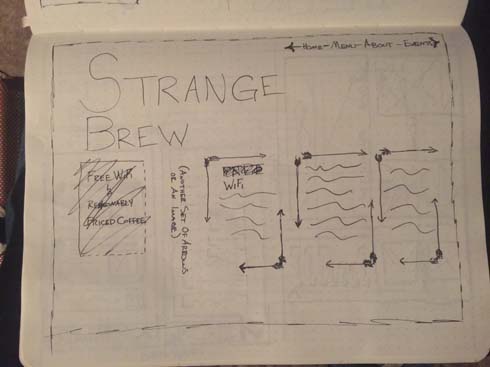 Home - Menu - About - Events
Strange
Brew
Free WiFi
&
Reasonably
Priced Coffee
(Another Set Of Arrows
Or An Image)
WiFi